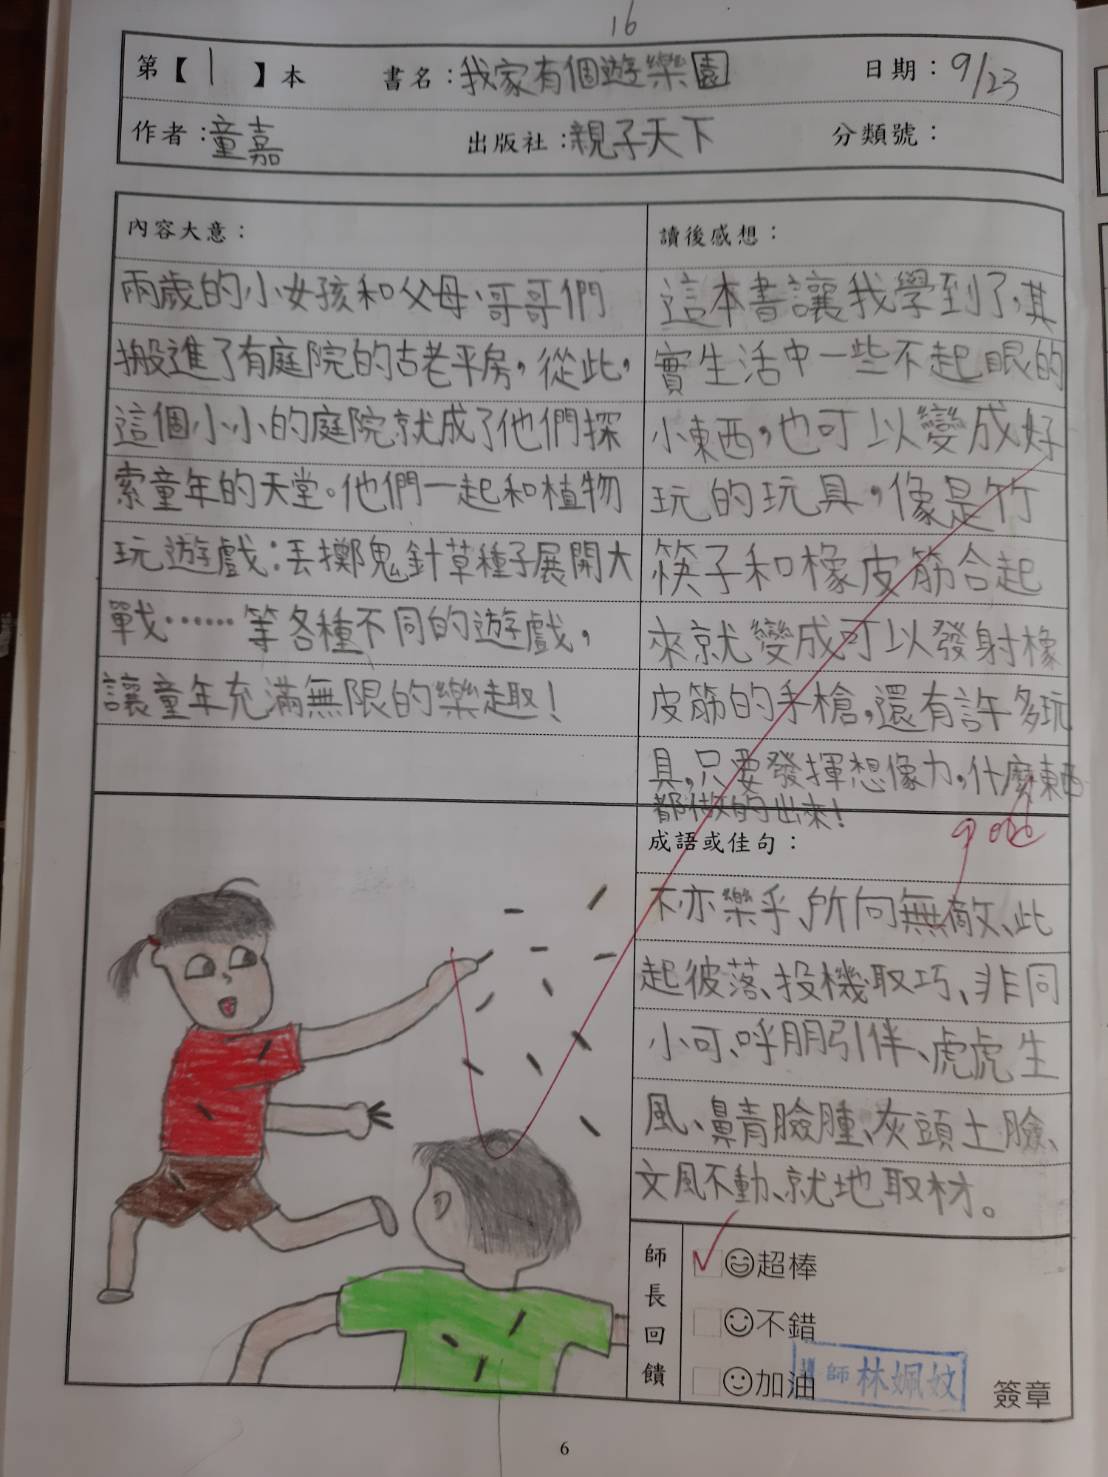 16
第【1】本 書名：我家有個遊樂園 日期：9/23
作者：童嘉 出版社：親子天下 分類號：
內容大意：
兩歲的小女孩和父母、哥哥們
搬進了有庭院的古老平房，從此，
這個小小的庭院就成了他們探
索童年的天堂。他們一起和植物
玩遊戲：丟擲鬼針草種子展開大
戰……等各種不同的遊戲，
讓童年充滿無限的樂趣！
讀後感想：
這本書讓我學到了，其
實生活中一些不起眼的
小東西，也可以變成好
玩的玩具，像是竹
筷子和橡皮筋合起
來就變成可以發射橡
皮筋的手槍，還有許多玩
具，只要發揮想像力，什麼東西
都做的出來！
good
成語或佳句：
不亦樂乎、所向無敵、此
起彼落、投機取巧、非同
小可、呼朋引伴、虎虎生
風、鼻青臉腫、灰頭土臉、
文風不動、就地取材。
師長回饋
超棒
不錯
加油
師 林姵妏
簽章
6